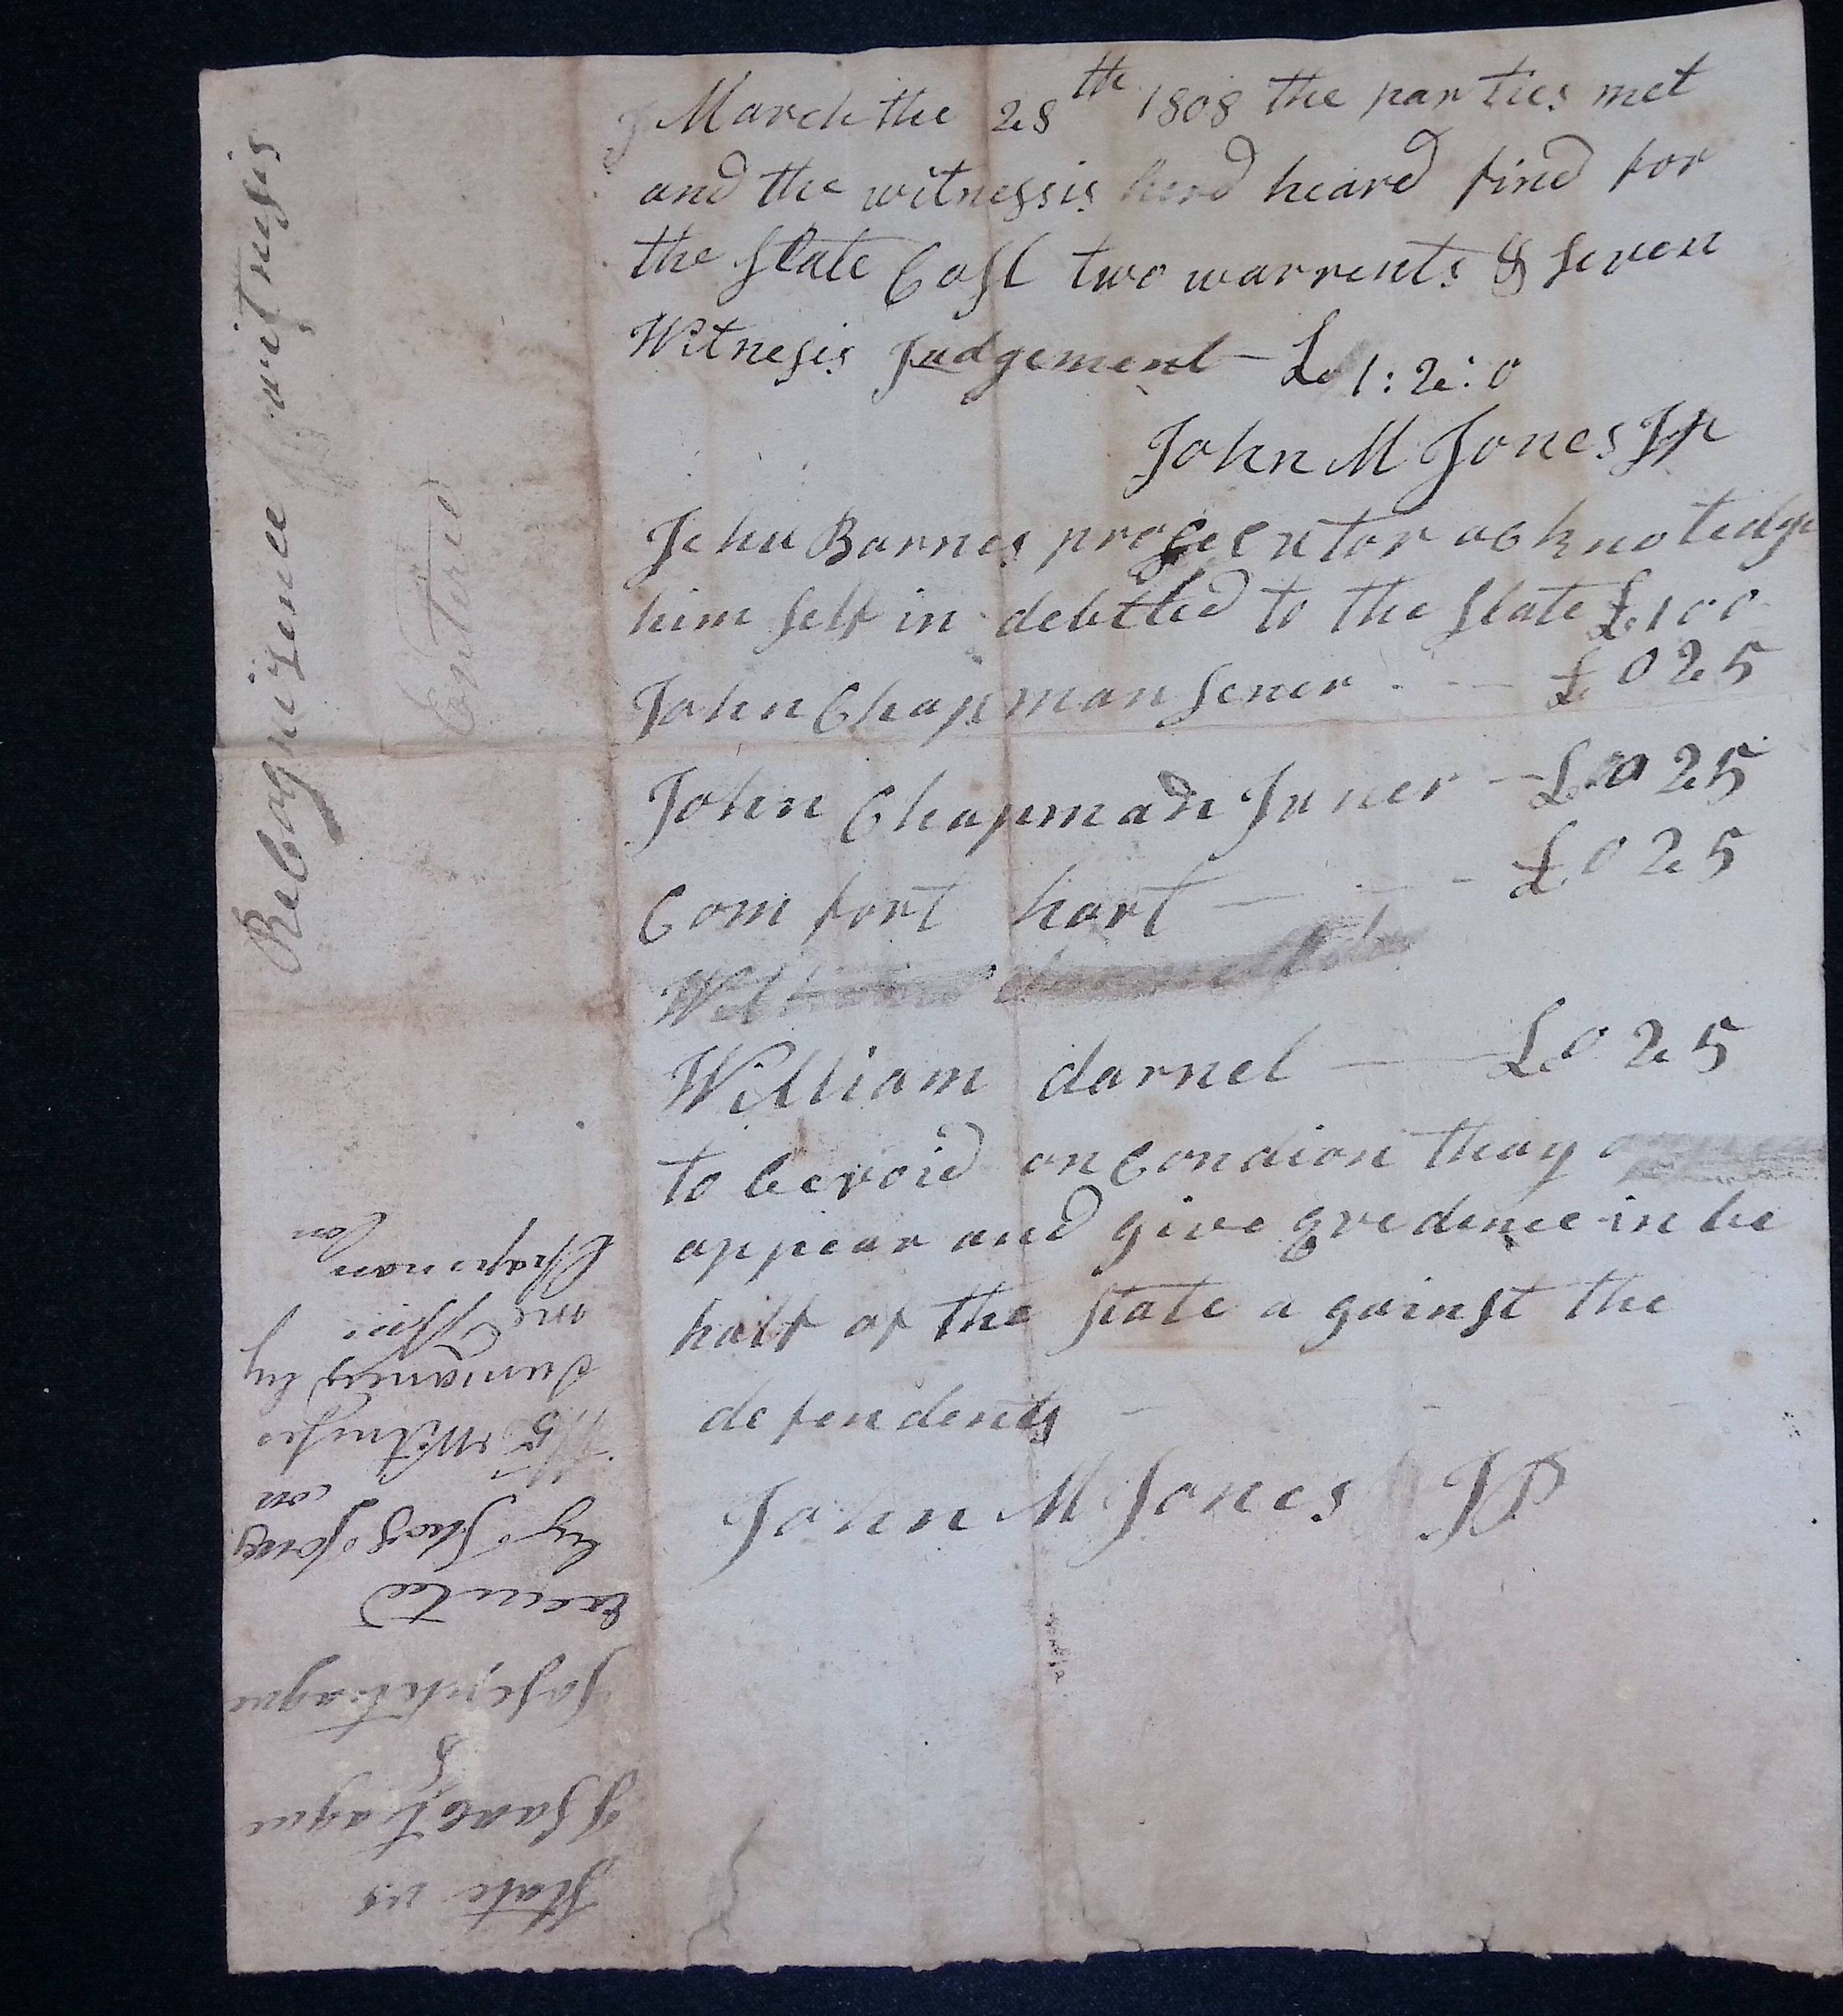 March the 28th 1808 the parties met
and the witnessis herd heard find for
the State Cost two warrents & seven
Witnesis Judgement - £ 1:2:0
John M Jones JP
John Barnes prosecutor acknoledge
him self in debtted to the State £100
John Chapman Sener - - £025
John Chapman Juner - £025
Comfort hart - - - £025
William darnel - £025
to be void on Condion thay
appear and give evedence in be
half of the State a gainst the
defendents -
John M Jones JP
Recognizence for witnesis
Entered
State vs
Isaac teague
&
Joseph teague
Executed
by Thos Jones
con
5 Witneses
sumaned by
me
Chapman
Con